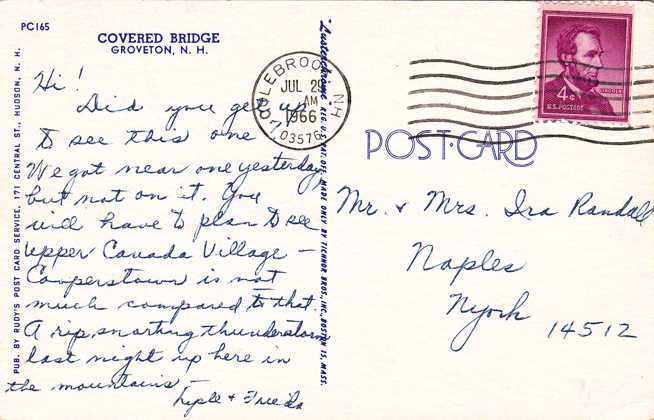 PC165
COVERED BRIDGE
GROVETON, N. H.
Hi!
Did you get up
to see this one
We got near one yesterday
but not on it. You
will have to plan to see
upper Canada Village –
Cooperstown is not
much compared to that.
A rip snorting thunderstorm
last night up here in
the mountains –
Lyle + Frieda
PUB. BY RUDY'S POST CARD SERVICE, 171 CENTRAL ST., HUDSON, N. H.
"Lusterchrome" REG. U.S. PAT. OFF. MADE ONLY BY TICHNOR BROS., INC. BOSTON 15, MASS.
COLEBROOK, NH
JUL 29
AM
1966
03576
4¢
LINCOLN
U.S. POSTAGE
POST-CARD
Mr. & Mrs. Ira Randall
Naples
Nyork
14512